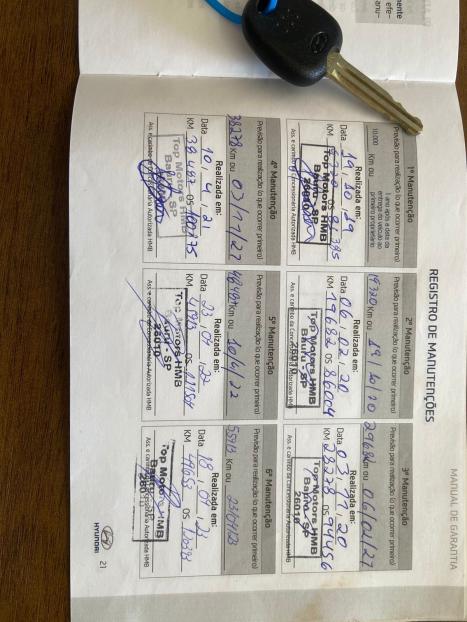 MANUAL DE GARANTIA
REGISTRO DE MANUTENÇÕES
1ª Manutenção
Previsão para realização (o que ocorrer primeiro)
10.000 Km ou
1 ano após a data da
entrega do veículo ao
primeiro proprietário
Realizada em:
Data 19, 10, 19
KM OS
Top Motors HMB
Bauru - SP
26010
Ass. e carimbo da Concessionária Autorizada HMB
2ª Manutenção
Previsão para realização (o que ocorrer primeiro)
Km ou 19/10/20
Realizada em:
Data 06, 02, 20
KM 19682 OS 86004
Top Motors HMB
Bauru - SP
26010
Ass. e carimbo da Concessionária Autorizada HMB
3ª Manutenção
Previsão para realização (o que ocorrer primeiro)
29682 Km ou 06/02/21
Realizada em:
Data 03, 11, 20
KM 28278 OS 94456
Top Motors HMB
Bauru - SP
26010
Ass. e carimbo da Concessionária Autorizada HMB
4ª Manutenção
Previsão para realização (o que ocorrer primeiro)
38278 Km ou 03/11/21
Realizada em:
Data 10, 4, 21
KM 38487 OS
Top Motors HMB
Bauru - SP
Ass. e carimbo da Concessionária Autorizada HMB
5ª Manutenção
Previsão para realização (o que ocorrer primeiro)
48487 Km ou 10/4/22
Realizada em:
Data 23, 01, 22
KM OS
Top Motors HMB
Bauru - SP
26010
Ass. e carimbo da Concessionária Autorizada HMB
6ª Manutenção
Previsão para realização (o que ocorrer primeiro)
Km ou 23/01/23
Realizada em:
Data 18, 01, 23
KM OS
Top Motors HMB
Bauru - SP
Ass. e carimbo da Concessionária Autorizada HMB
HYUNDAI 21